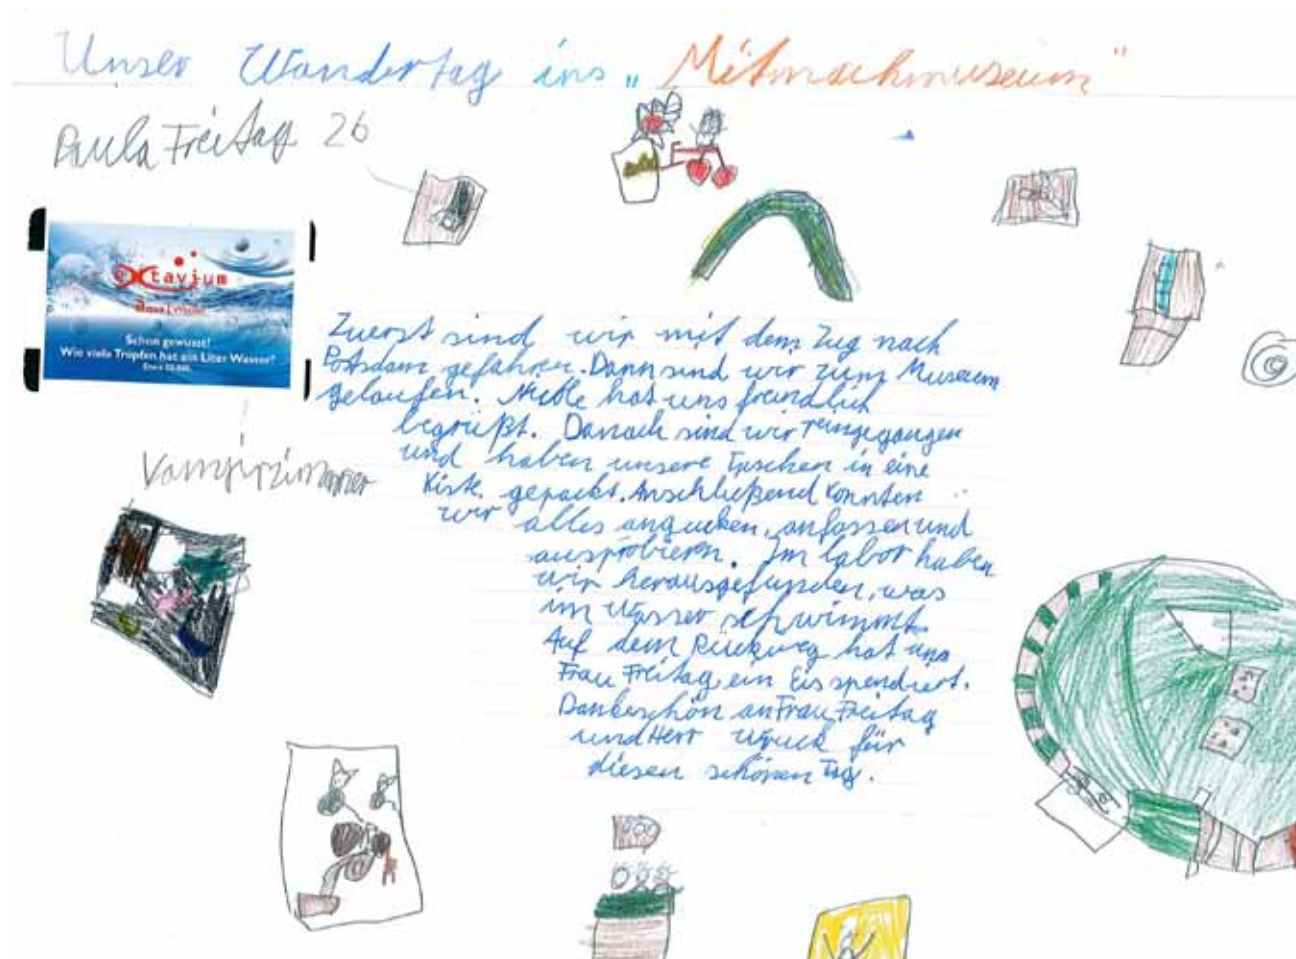 Unser Wandertag ins „Mitmachmuseum“
Paula Freitag 26
extavium
Schon gewusst?
Wie viele Tropfen hat ein Liter Wasser?
Zuerst sind wir mit dem Zug nach
Potsdam gefahren. Dann sind wir zum Museum
gelaufen. hat uns freundlich
begrüßt. Danach sind wir reingegangen
und haben unsere Taschen in eine
Kiste gepackt. Anschließend konnten
wir alles angucken, anfassen und
ausprobiern. Im Labor haben
wir herausgefunden, was
im Wasser schwimmt.
Auf dem Rückweg hat uns
Frau Freitag ein Eis spendiert.
Dankeschön an Frau Freitag
und Herr für
diesen schönen Tag.
Vampirzimmer